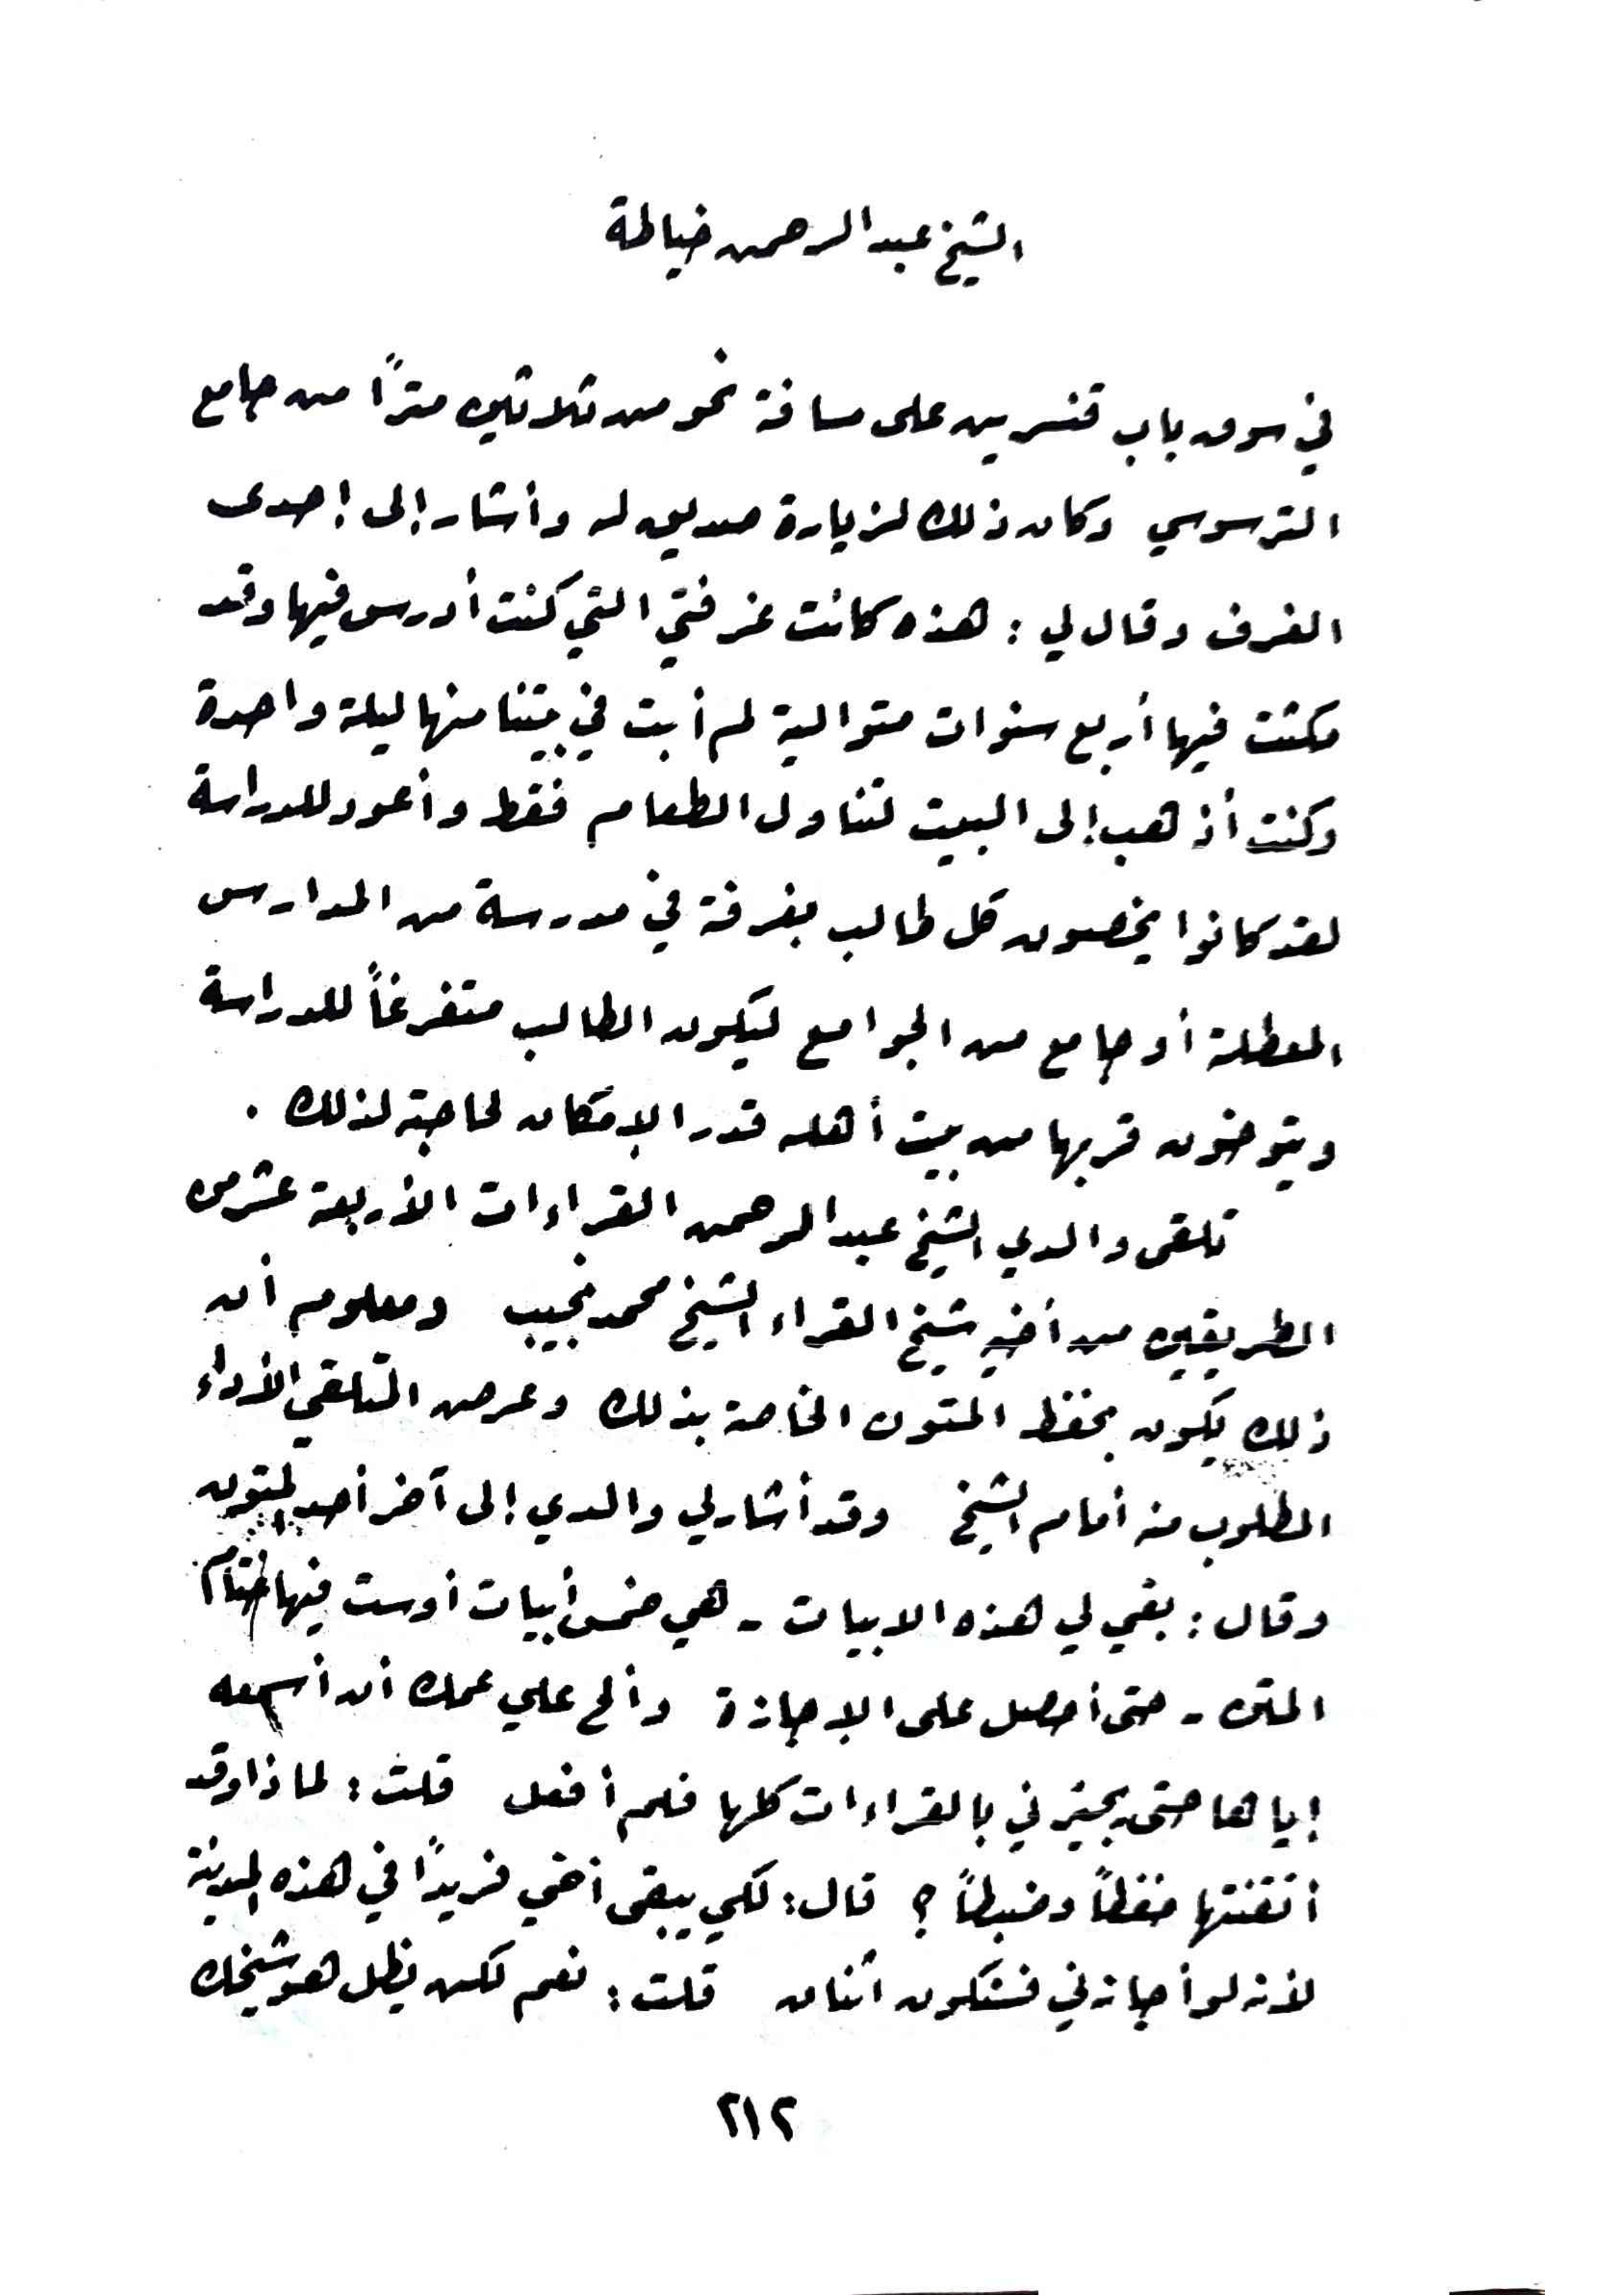 الشيخ عبد الرحمن خياطة
في سوق باب قنسرين على مسافة نحو من ثلاثين مترًا من جامع
الترسوسي وكان ذلك لزيارة صديق له وأشار إلى إحدى
الغرف وقال لي : هذه كانت غرفتي التي كنت أدرس فيها وقد
مكثت فيها أربع سنوات متوالية لم أبت في بيتنا منها ليلة واحدة
وكنت أذهب إلى البيت لتناول الطعام فقط وأعود للدراسة
لقد كانوا يخصون كل طالب بغرفة في مدرسة من المدارس
المعطلة أو جامع من الجوامع ليكون الطالب متفرغاً للدراسة
ويتوخون قربها من بيت أهله قدر الإمكان لحاجته لذلك .
تلقى والدي الشيخ عبد الرحمن القراءات الأربعة عشر من
الطريقين من أخيه شيخ القراء الشيخ محمد نجيب ومعلوم أن
ذلك يكون بحفظ المتون الخاصة بذلك وعرض المتلقي الأداء
المطلوب منه أمام الشيخ وقد أشار لي والدي إلى آخر أحد المتون
وقال : بقي لي هذه الابيات - هي خمس أبيات أو ست فيها ختام
المتن - حتى أحصل على الإجازة وألح علي عمك أن أسمعه
إياها حتى يجيزني بالقراءات كلها فلم أفعل قلت : لماذا وقد
أتقنتها حفظاً وضبطاً ؟ قال : لكي يبقى أخي فريدًا في هذه المدينة
لأنه لو أجازني فسنكون اثنان قلت : نعم لكن يظل هو شيخك
٢١٢